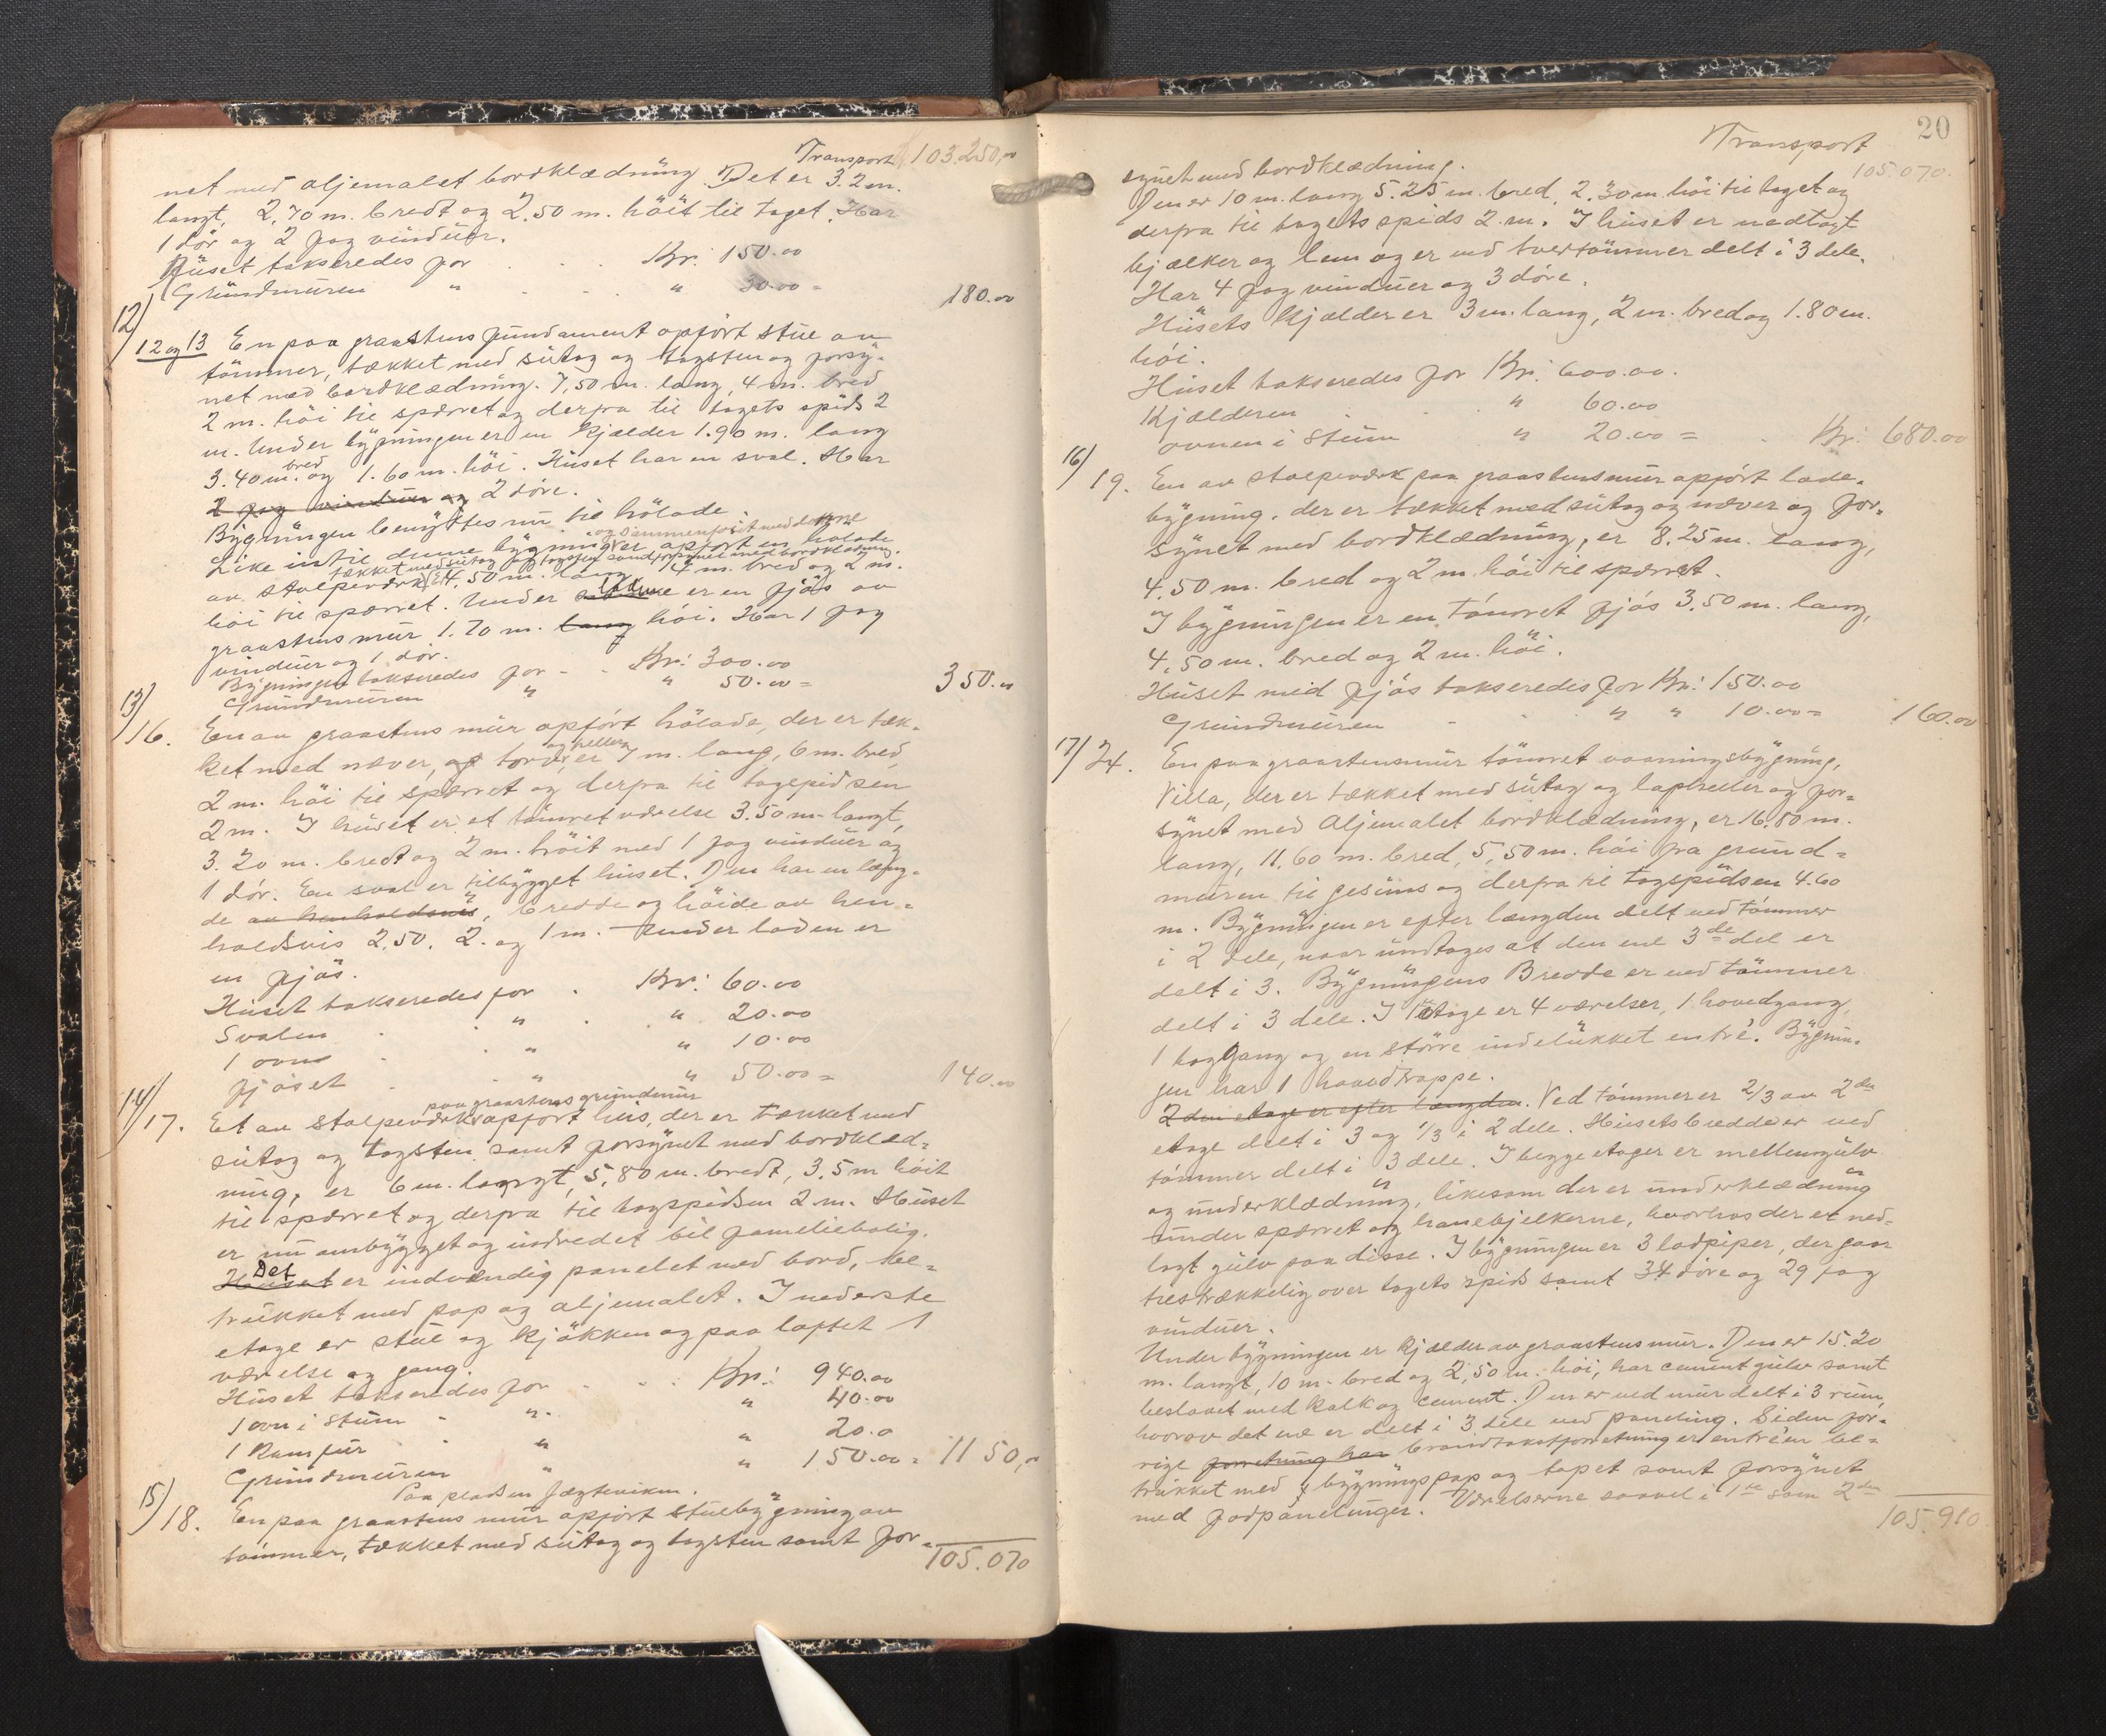 Transport 103.250,00
net med oljemalet bordklædning. Det er 3.2 m.
langt, 2,70 m. bredt og 2.50 m. höit til taget. Har
1 dör og 2 fag vinduer.
Huset takseredes for . . . Kr: 150.00
Grundmuren " - . . " 30.00 = 180.00
12)
12 og 13 En paa graastens fundament opfört stue av
tömmer, tækket med sutag og tagsten og forsy-
net med bordklædning. 7,50 m. lang, 4 m. bred
2 m. höi til spærret og derfra til tagets spids 2
m. Under bygningen er en kjælder 1.90 m. lang
3.40 m. bred og 1.60 m. höi. Huset har en sval. Har
2 fag vinduer og 2 döre.
Bygningen benyttes nu til hölade.
og sammenföiet med denne
Like intil denne bygning er opfört en hölade
tækket med sutag og tagsten samt forsynet med bordklædning.
av stolpeværk, 4,50 m. lang, 4 m. bred og 2 m.
höi til spærret. Under laden er en fjös av
graastensmur 1.70 m. lang höi. Har 1 fag
vinduer og 1 dör.
Bygningen takseredes for - . Kr: 300.00
Grundmuren " " 50.00 = 350.00
13)
16. En av graastens mur opfört hölade, der er tæk-
ket med næver, og torv og heller, er 7 m. lang, 6 m. bred,
2 m. höi til spærret og derfra til tagspidsen
2 m. I huset er et tömret værelse 3.50 m. langt,
3.20 m. bredt og 2 m. höit med 1 fag vinduer og
1 dör. En sval er tilbygget huset. Den har en læng-
de av henholdsvis, bredde og höide av hen-
holdsvis 2.50. 2. og 1 m. Under laden er
en fjös.
Huset takseredes for . Kr: 60.00
Svalen . " . " 20.00
1 ovn . " " 10.00
Fjöset . " " 50.00 = 140.00
14)
paa graastens grundmur
17. Et av stolpeværk opfört hus, der er tækket med
sutag og tagsten samt forsynet med bordklæd-
ning, er 6 m. langt, 5,80 m. bredt, 3,5 m höit
til spærret og derfra til tagspidsen 2 m. Huset
er nu ombygget og indredet til familiebolig.
Huset Det er indvendig panelet med bord, be-
trukket med pap og oljemalet. I nederste
etage er stue og kjökken og paa loftet 1
værelse og gang.
Huset takseredes for . . . Kr: 940.00
1 ovn i stuen - " - " 40.00
1 komfur . " " 20.0
Grundmuren " " 150.00 = 1150,00
Paa pladsen Jægteviken.
15)
18. En paa graastens mur opfört stuebygning av
tömmer, tækket med sutag og tagsten samt for-
105.070
20
Transport
105.070.
synet med bordklædning.
Den er 10 m. lang 5.25 m. bred, 2.30 m. höi til taget og
derfra til tagets spids 2 m. I huset er nedlagt
bjælker og lem og er med tvertömmer delt i 3 dele.
Har 4 fag vinduer og 3 döre.
Husets kjælder er 3 m. lang, 2 m. bred og 1.80 m.
höi.
Huset takseredes for Kr: 600.00.
Kjælderen . . . " 60.00
ovnen i stuen " 20.00 = . Kr: 680.00
16)
19. En av stolpeværk paa graastensmur opfört lade-
bygning, der er tækket med sutag og næver og for-
synet med bordklædning, er 8.25 m. lang,
4.50 m. bred og 2 m. höi til spærret.
I bygningen er en tömret fjös 3.50 m. lang,
4,50 m. bred og 2 m. höi.
Huset med fjös takseredes for Kr: 150.00
Grundmuren - . " " 10.00 = 160.00
17)
24. En paa graastensmur tömret vaaningsbygning,
Villa, der er tækket med sutag og lapheller og for-
synet med oljemalet bordklædning, er 16.80 m.
lang, 11.60 m. bred, 5,50 m. höi fra grund-
muren til gesims og derfra til tagspidsen 4.60
m. Bygningen er efter længden delt med tömmer
i 2 dele, naar undtages at den ene 3de del er
delt i 3. Bygningens Bredde er med tömmer
delt i 3 dele. I 1ste etage er 4 værelser, 1 hovedgang,
1 baggang og en större indelukket entré. Bygnin-
gen har 1 hovedtrappe.
2den etage er efter længden. Ved tömmer er 2/3 av 2den
etage delt i 3 og 1/3 i 2 dele. Husets bredde er med
tömmer delt i 3 dele. I begge etager er mellemgulv
og underklædning, likesom der er underklædning
under spærret og hanebjelkerne, hvorhos der er ned-
lagt gulv paa disse. I bygningen er 3 ladpiper, der gaar
tilstrækkelig over tagets spids samt 34 döre og 29 fag
vinduer.
Under bygningen er kjælder av graastensmur. Den er 15.20
m. langt, 10 m. bred og 2,50 m. höi, har cementgulv samt
beslaaet med kalk og cement. Den er med mur delt i 3 rum,
hvorav det ene er delt i 3 dele med paneling. Siden for-
rige forretning har brandtakstforretning er entréen be-
trukket med bygningspap og tapet samt forsynet
med fodpanelinger. Værelserne saavel i 1ste som 2den
105.910.